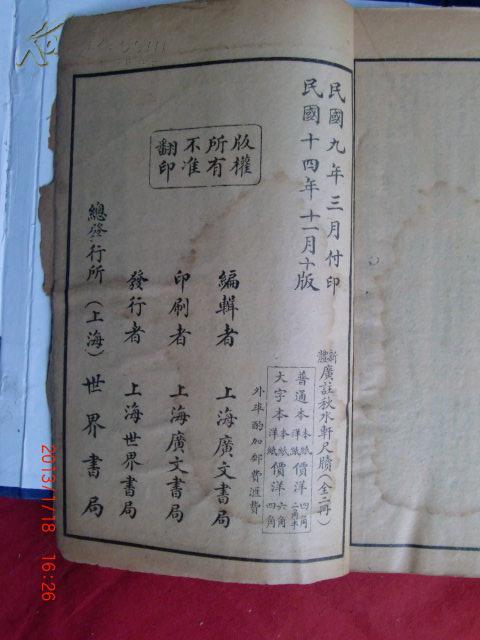 民國九年三月付印
民國十四年十一月十版
版權
所有
不准
翻印
新體廣註秋水軒尺牘（全二冊）
普通本 本紙 洋紙 價洋 四角 二角半
大字本 本紙 洋紙 價洋 六角 四角
外埠酌加郵費滙費
編輯者 上海廣文書局
印刷者 上海廣文書局
發行者 上海世界書局
總發行所（上海）世界書局
2013/1/18 16:26